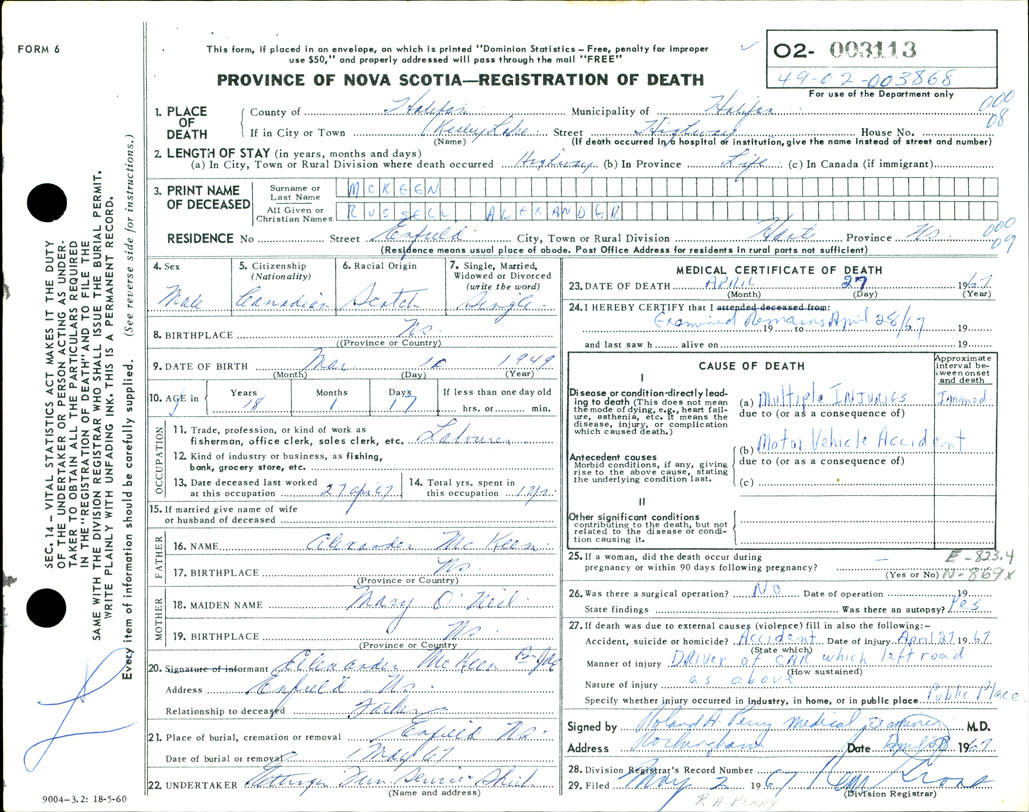 FORM 6
This form, if placed in an envelope, on which is printed "Dominion Statistics – Free, penalty for improper
use $50," and properly addressed will pass through the mail "FREE"
PROVINCE OF NOVA SCOTIA—REGISTRATION OF DEATH
02- 003113
49-02-003868
For use of the Department only
000
08
SEC. 14 – VITAL STATISTICS ACT MAKES IT THE DUTY
OF THE UNDERTAKER OR PERSON ACTING AS UNDER-
TAKER TO OBTAIN ALL THE PARTICULARS REQUIRED
IN THE "REGISTRATION OF DEATH" AND TO FILE THE
SAME WITH THE DIVISION REGISTRAR WHO SHALL ISSUE THE BURIAL PERMIT.
WRITE PLAINLY WITH UNFADING INK. THIS IS A PERMANENT RECORD.
Every item of information should be carefully supplied. (See reverse side for instructions.)
1. PLACE OF DEATH
County of Halifax Municipality of Halifax
If in City or Town Kelley Lake Street Highway House No.
(Name) (If death occurred in a hospital or institution, give the name instead of street and number)
2. LENGTH OF STAY (in years, months and days)
(a) In City, Town or Rural Division where death occurred Highway (b) In Province Life (c) In Canada (if immigrant)
3. PRINT NAME OF DECEASED
Surname or Last Name MCKEEN
All Given or Christian Names RUSSELL ALEXANDER
RESIDENCE No Street Enfield City, Town or Rural Division Hants Province NS.
000
09
(Residence means usual place of abode. Post Office Address for residents in rural parts not sufficient)
4. Sex Male
5. Citizenship (Nationality) Canadian
6. Racial Origin Scotch
7. Single, Married, Widowed or Divorced (write the word) Single
8. BIRTHPLACE NS.
(Province or County)
9. DATE OF BIRTH Mar 10 1949
(Month) (Day) (Year)
10. AGE in Years 18 Months 1 Days 17 If less than one day old
hrs. or min.
OCCUPATION
11. Trade, profession, or kind of work as
fisherman, office clerk, sales clerk, etc. Labourer
12. Kind of industry or business, as fishing,
bank, grocery store, etc.
13. Date deceased last worked
at this occupation 27 Apr 67
14. Total yrs. spent in
this occupation 1 yr.
15. If married give name of wife
or husband of deceased
FATHER
16. NAME Alexander McKeen
17. BIRTHPLACE NS.
(Province or Country)
MOTHER
18. MAIDEN NAME Mary O'Neil
19. BIRTHPLACE NS.
(Province or Country)
20. Signature of informant Alexander McKeen
Address Enfield NS
Relationship to deceased Father
21. Place of burial, cremation or removal Enfield NS.
Date of burial or removal 1 May 67
22. UNDERTAKER
(Name and address)
9004-3.2: 18-5-60
MEDICAL CERTIFICATE OF DEATH
23. DATE OF DEATH APRIL 27 1967
(Month) (Day) (Year)
24. I HEREBY CERTIFY that I attended deceased from:
Examined Remains April 28/67 19 to 19
and last saw h alive on 19
CAUSE OF DEATH
Approximate interval between onset and death
I
Disease or condition directly lead-
ing to death (This does not mean
the mode of dying, e.g., heart fail-
ure, asthenia, etc. It means the
disease, injury, or complication
which caused death.)
(a) Multiple INJURIES Immed.
due to (or as a consequence of)
Antecedent causes
Morbid conditions, if any, giving
rise to the above cause, stating
the underlying condition last.
(b) Motor Vehicle Accident
due to (or as a consequence of)
(c)
II
Other significant conditions
contributing to the death, but not
related to the disease or condi-
tion causing it.
25. If a woman, did the death occur during
pregnancy or within 90 days following pregnancy? —
(Yes or No)
E-823.4
N-869x
26. Was there a surgical operation? No Date of operation 19
State findings Was there an autopsy? Yes
27. If death was due to external causes (violence) fill in also the following:–
Accident, suicide or homicide? Accident Date of injury April 27 1967
(State which)
Manner of injury DRIVER of CAR which left road
(How sustained)
Nature of injury as above
Specify whether injury occurred in industry, in home, or in public place Public Place
Signed by Roland H. Perry Medical Examiner M.D.
Address Rockingham Date April 28 1967
28. Division Registrar's Record Number
29. Filed May 2 1967
(Division Registrar)
R.H. PERRY